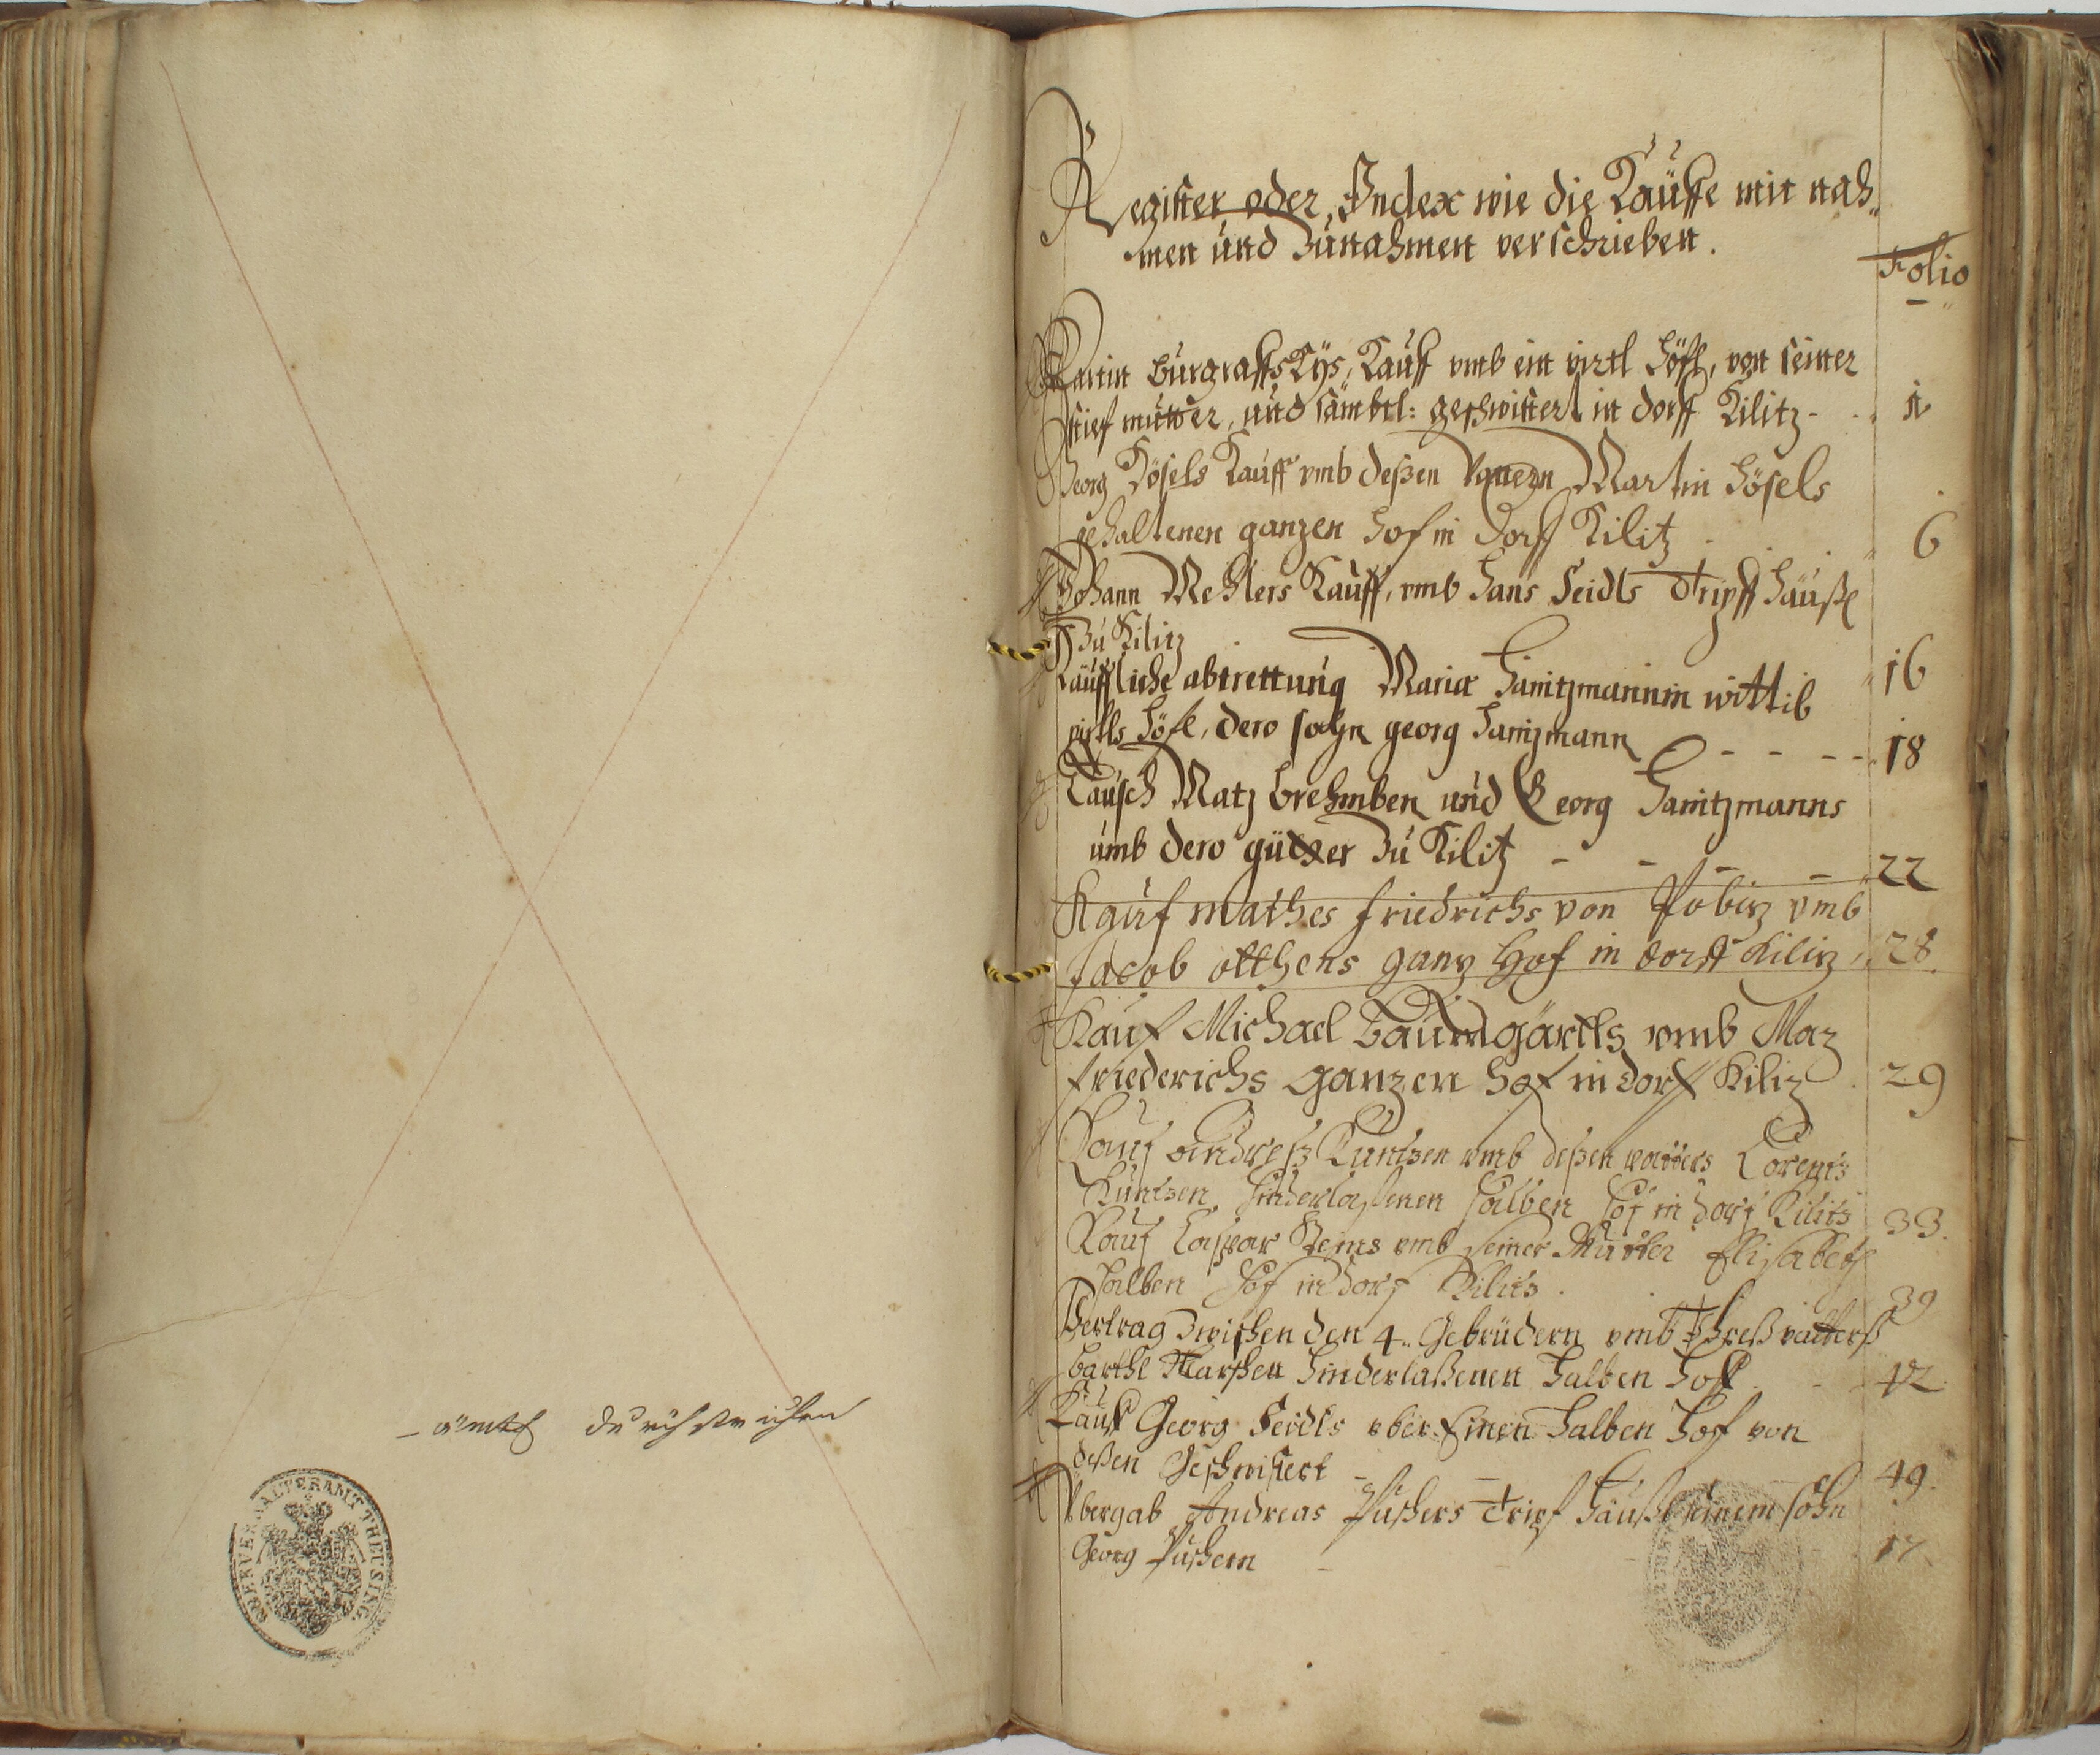 ämtl durchstrichen
OBERVERWALTERAMT THEUSING
Register oder Index wie die Käuffe mit nah„
men und Zunahmen verschrieben.
Folio
Martin Burgraffs Kauff vmb ein virtl Höfl, von seiner
stief mutter, und sämbtl: geschwistert in dorff Kilitz - 1
Georg Hösels Kauff vmb deßen Vattern Martin Hösels
gehaltenen ganzen Hof in Dorff Kilitz 6
Johann Mehlers Kauff, vmb Hans Seidls Tripff Häußl
Zu Kilitz 16
Käuffliche abtrettung Maria Hanitzmannin wittib
virtls Höfl, dero sohn georg Hanizmann - - - - 18
Tausch Matz Brehmben und Georg Hanitzmanns
umb dero gütter Zu Kilitz - - - - 22
Kauf Mathes friedrichs von Pobiz vmb
Jacob otthens ganz Hof in dorff Kiliz 28.
Kauf Michael Baumgärtls vmb Maz
friederichs ganzen Hof in dorf Kiliz 29
Kauf Andreß Kuntzen vmb deßen vatters Lorentz
Kuntzen hinderlaßenen halben Hof in dorf Kilitz 33.
Kauf Caspar vmb seiner Mutter Elisabeth
halben Hof in dorf Kilitz. 39
Vertrag Zwischen den 4.. Gebrüdern vmb Ihreß vatterß
Barthl hinderlaßenen Halben Hoff 42
Kauff Georg Seidls vber Einen Halben Hof von
deßen Geschwistert - - 49.
Vbergab Andreas Puschers Tripf Häußl seinem sohn
Georg Puschern -